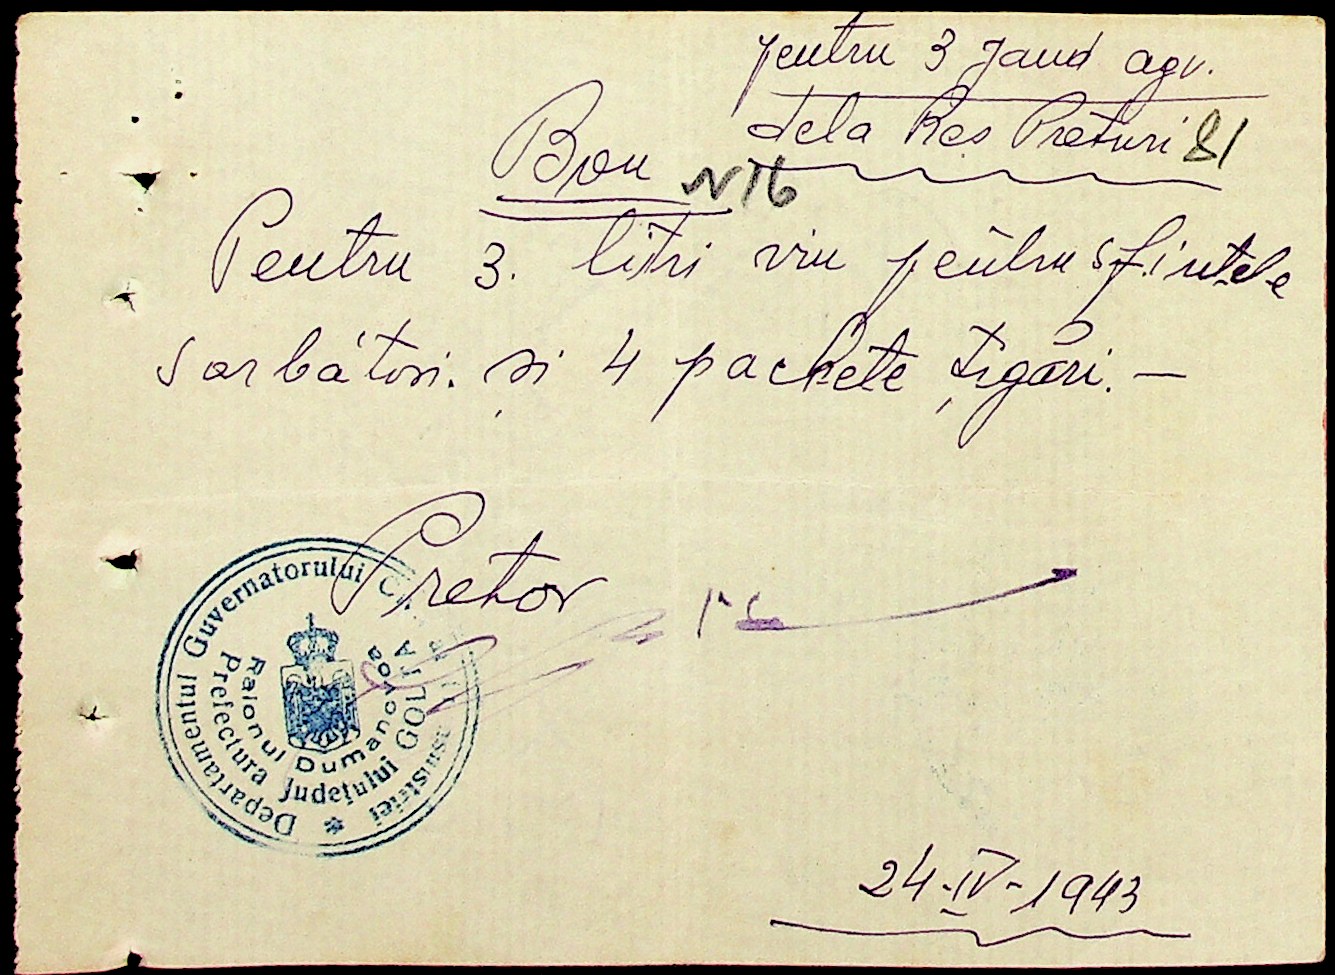 pentru 3 jand agv.
dela Res Preturi 81
Bon N 16
Pentru 3. litri vin pentru sfintele
sarbători. și 4 pachete țigări. —
Pretor
Departamentul Guvernatorului
Prefectura Județului GOLTA
Raionul Dumanovca
24-IV-1943